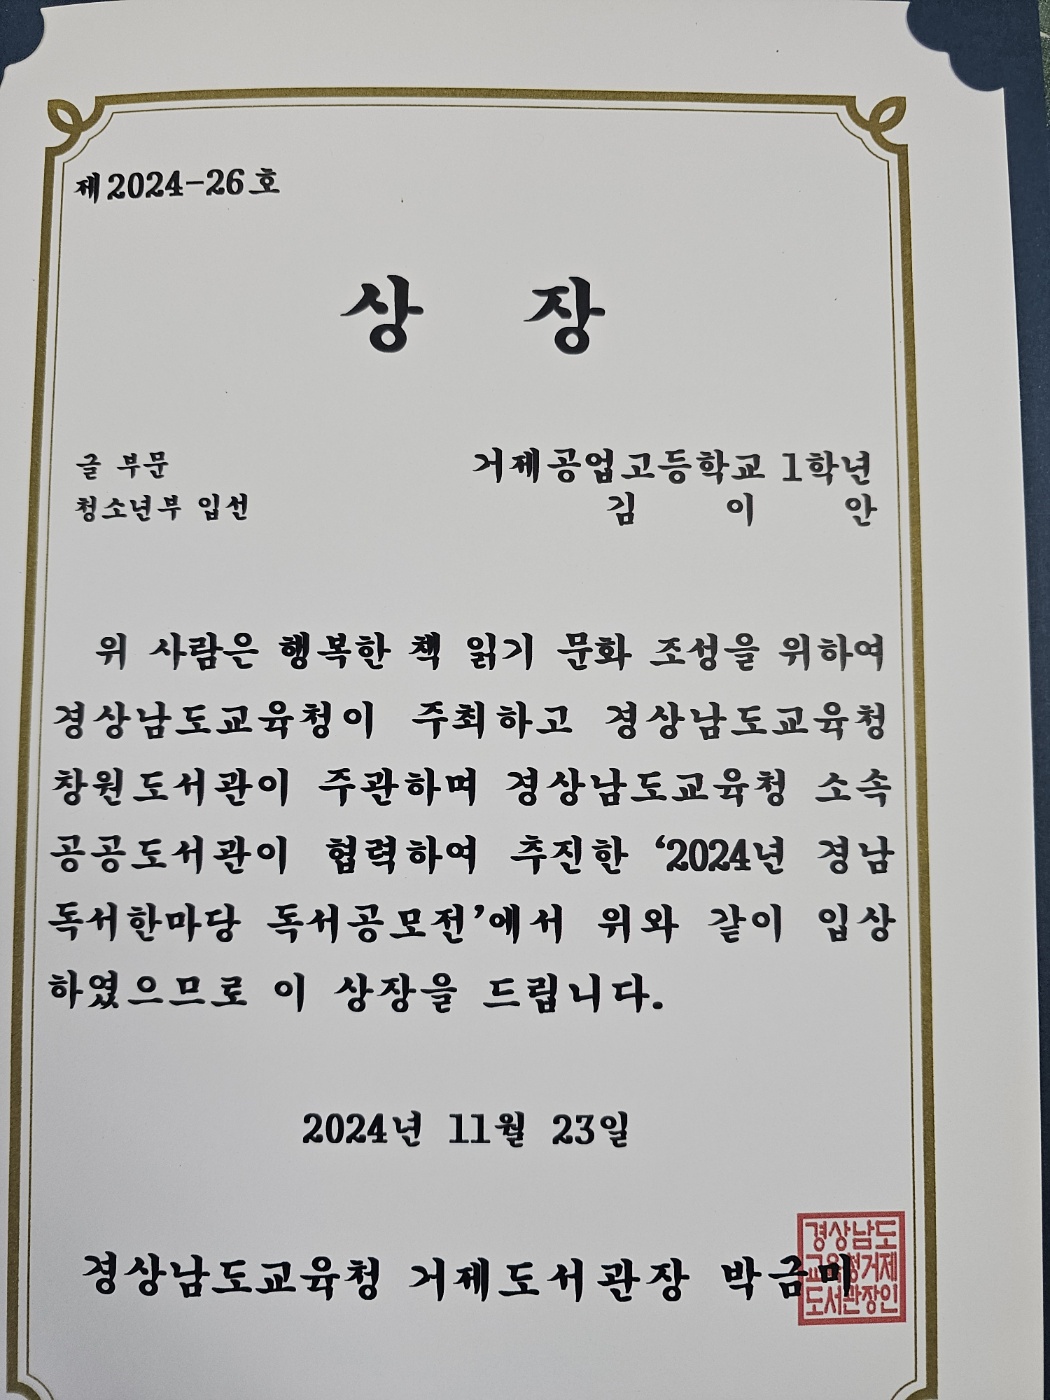 제2024-26호
상 장
글 부문
청소년부 입선
거제공업고등학교 1학년
김 이 안
위 사람은 행복한 책 읽기 문화 조성을 위하여
경상남도교육청이 주최하고 경상남도교육청
창원도서관이 주관하며 경상남도교육청 소속
공공도서관이 협력하여 추진한 ‘2024년 경남
독서한마당 독서공모전’에서 위와 같이 입상
하였으므로 이 상장을 드립니다.
2024년 11월 23일
경상남도교육청 거제도서관장 박금미
경상남도
교육청거제
도서관장인